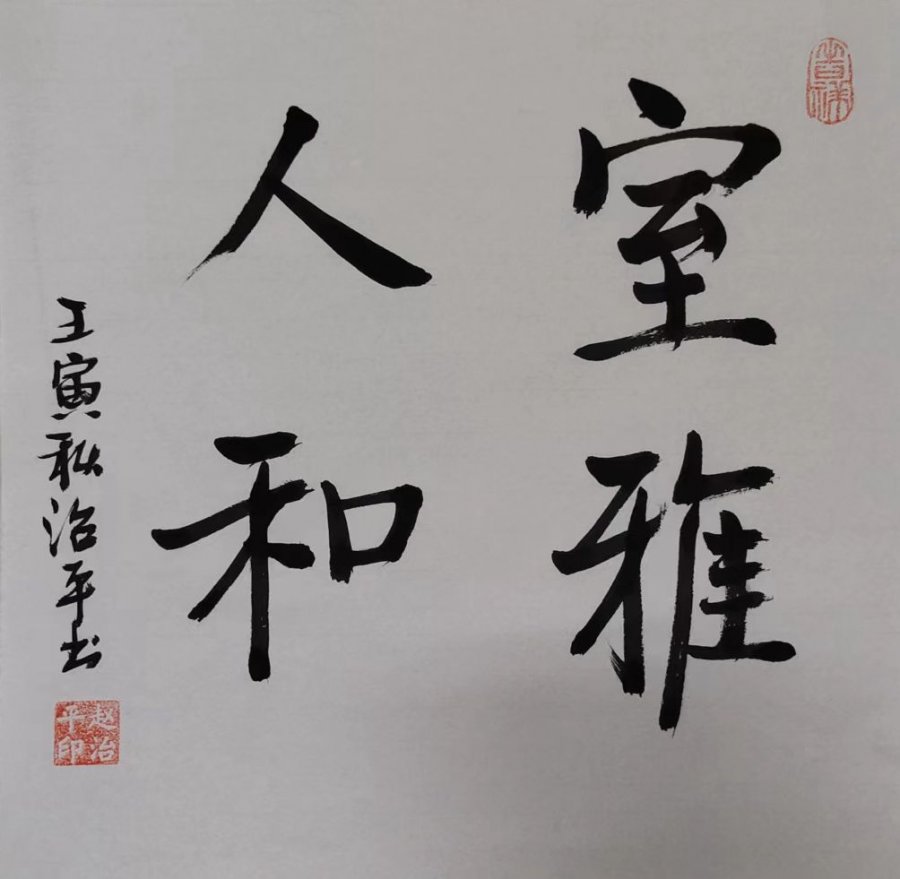 室雅
人和
壬寅秋治平书
赵治平印